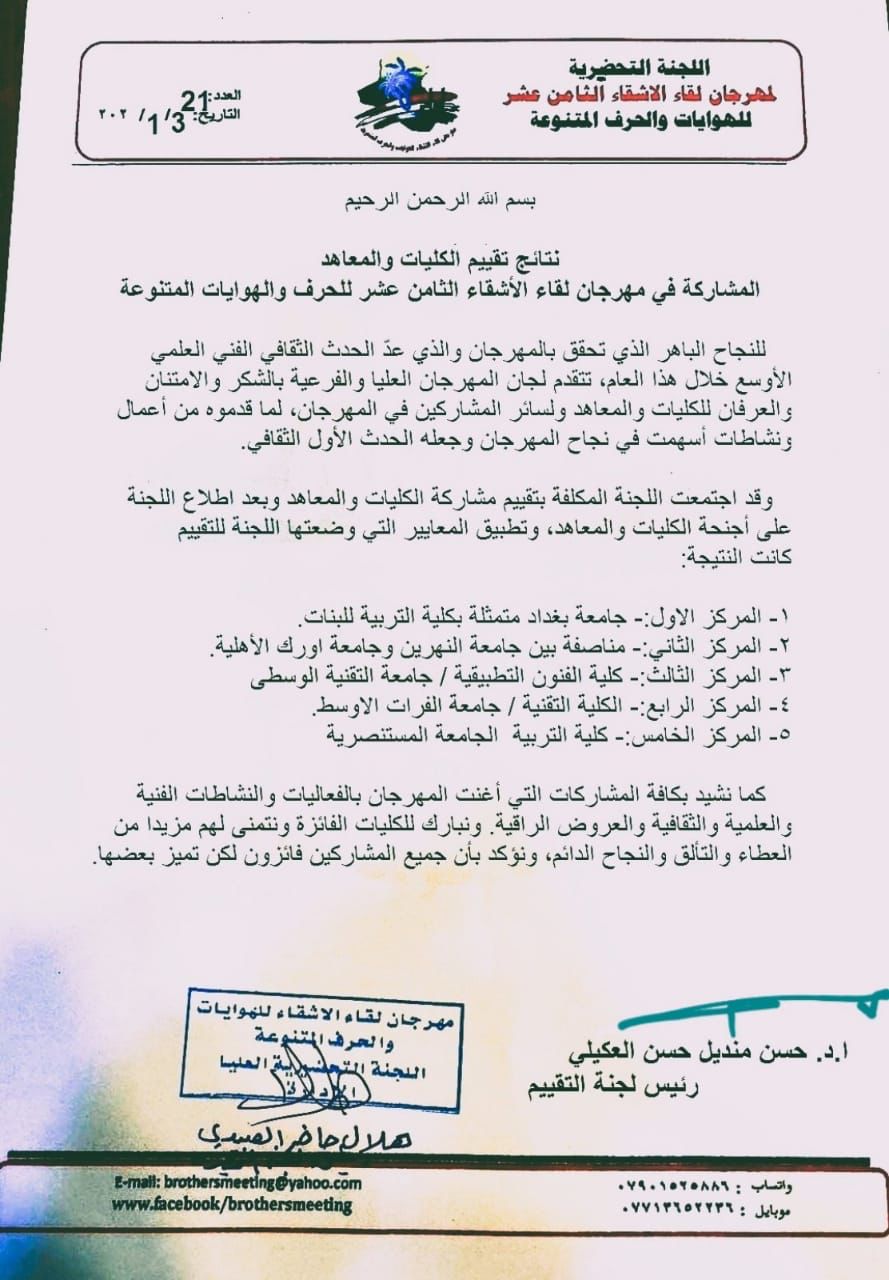 اللجنة التحضيرية
لمهرجان لقاء الاشقاء الثامن عشر
للهوايات والحرف المتنوعة
العدد: 21
التاريخ: 3 / 1 / ٢٠٢
بسم الله الرحمن الرحيم
نتائج تقييم الكليات والمعاهد
المشاركة في مهرجان لقاء الأشقاء الثامن عشر للحرف والهوايات المتنوعة
للنجاح الباهر الذي تحقق بالمهرجان والذي عدّ الحدث الثقافي الفني العلمي
الأوسع خلال هذا العام، تتقدم لجان المهرجان العليا والفرعية بالشكر والامتنان
والعرفان للكليات والمعاهد ولسائر المشاركين في المهرجان، لما قدموه من أعمال
ونشاطات أسهمت في نجاح المهرجان وجعله الحدث الأول الثقافي.
وقد اجتمعت اللجنة المكلفة بتقييم مشاركة الكليات والمعاهد وبعد اطلاع اللجنة
على أجنحة الكليات والمعاهد، وتطبيق المعايير التي وضعتها اللجنة للتقييم
كانت النتيجة:
١- المركز الاول:- جامعة بغداد متمثلة بكلية التربية للبنات.
٢- المركز الثاني:- مناصفة بين جامعة النهرين وجامعة اورك الأهلية.
٣- المركز الثالث:- كلية الفنون التطبيقية / جامعة التقنية الوسطى
٤- المركز الرابع:- الكلية التقنية / جامعة الفرات الاوسط.
٥- المركز الخامس:- كلية التربية الجامعة المستنصرية
كما نشيد بكافة المشاركات التي أغنت المهرجان بالفعاليات والنشاطات الفنية
والعلمية والثقافية والعروض الراقية. ونبارك للكليات الفائزة ونتمنى لهم مزيدا من
العطاء والتألق والنجاح الدائم، ونؤكد بأن جميع المشاركين فائزون لكن تميز بعضها.
ا.د. حسن منديل حسن العكيلي
رئيس لجنة التقييم
مهرجان لقاء الاشقاء للهوايات
والحرف المتنوعة
اللجنة التحضيرية العليا
الإدارة
هلال حاضر العبيدي
واتساب : ٠٧٩٠١٥٢٥٨٨٦
موبايل : ٠٧٧١٣٦٥٢٢٣٦
E-mail: brothersmeeting@yahoo.com
www.facebook/brothersmeeting